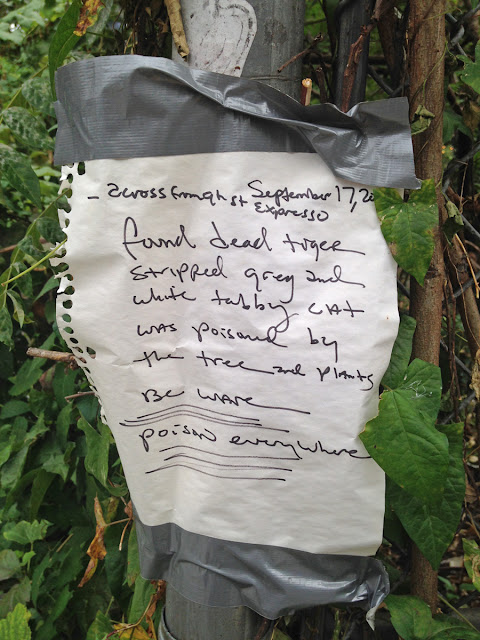 - across from high st September 17, 20
Expresso
found dead tiger
stripped grey and
white tabby cat
was poisoned by
the tree and plants
BE WARE
poison everywhere